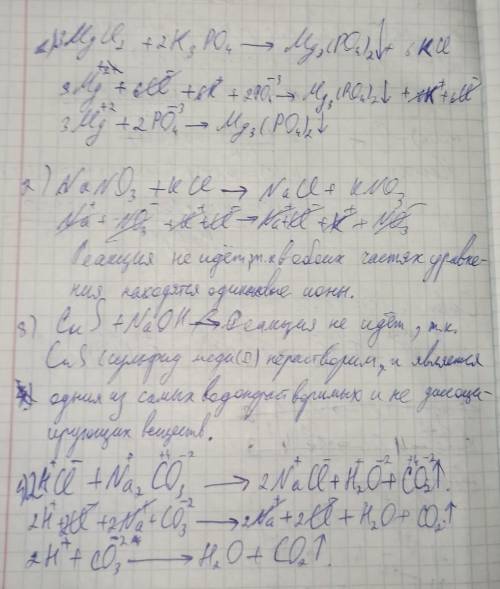 1) 3MgCl₂ + 2H₃PO₄ → Mg₃(PO₄)₂↓ + 6HCl
3Mg⁺² + 6Cl⁻ + 6H⁺ + 2PO₄⁻³ → Mg₃(PO₄)₂↓ + 6H⁺ + 6Cl⁻
3Mg⁺² + 2PO₄⁻³ → Mg₃(PO₄)₂↓
2) NaNO₃ + HCl → NaCl + HNO₃
Na⁺ + NO₃⁻ + H⁺ + Cl⁻ → Na⁺ + Cl⁻ + H⁺ + NO₃⁻
Реакция не идёт, т.к в обоих частях уравне-
ния находятся одинаковые ионы.
3) CuS + NaOH Реакция не идёт, т.к.
CuS (сульфид меди(II)) нерастворим, и является
одним из самых водонерастворимых и не диссоци-
ирующих веществ.
4) 2H⁺Cl⁻ + Na₂⁺CO₃⁻² → 2Na⁺Cl⁻ + H₂⁺O⁻² + C⁺⁴O₂⁻²↑.
2H⁺ + 2Cl⁻ + 2Na⁺ + CO₃⁻² → 2Na⁺ + 2Cl⁻ + H₂O + CO₂↑
2H⁺ + CO₃⁻² → H₂O + CO₂↑.